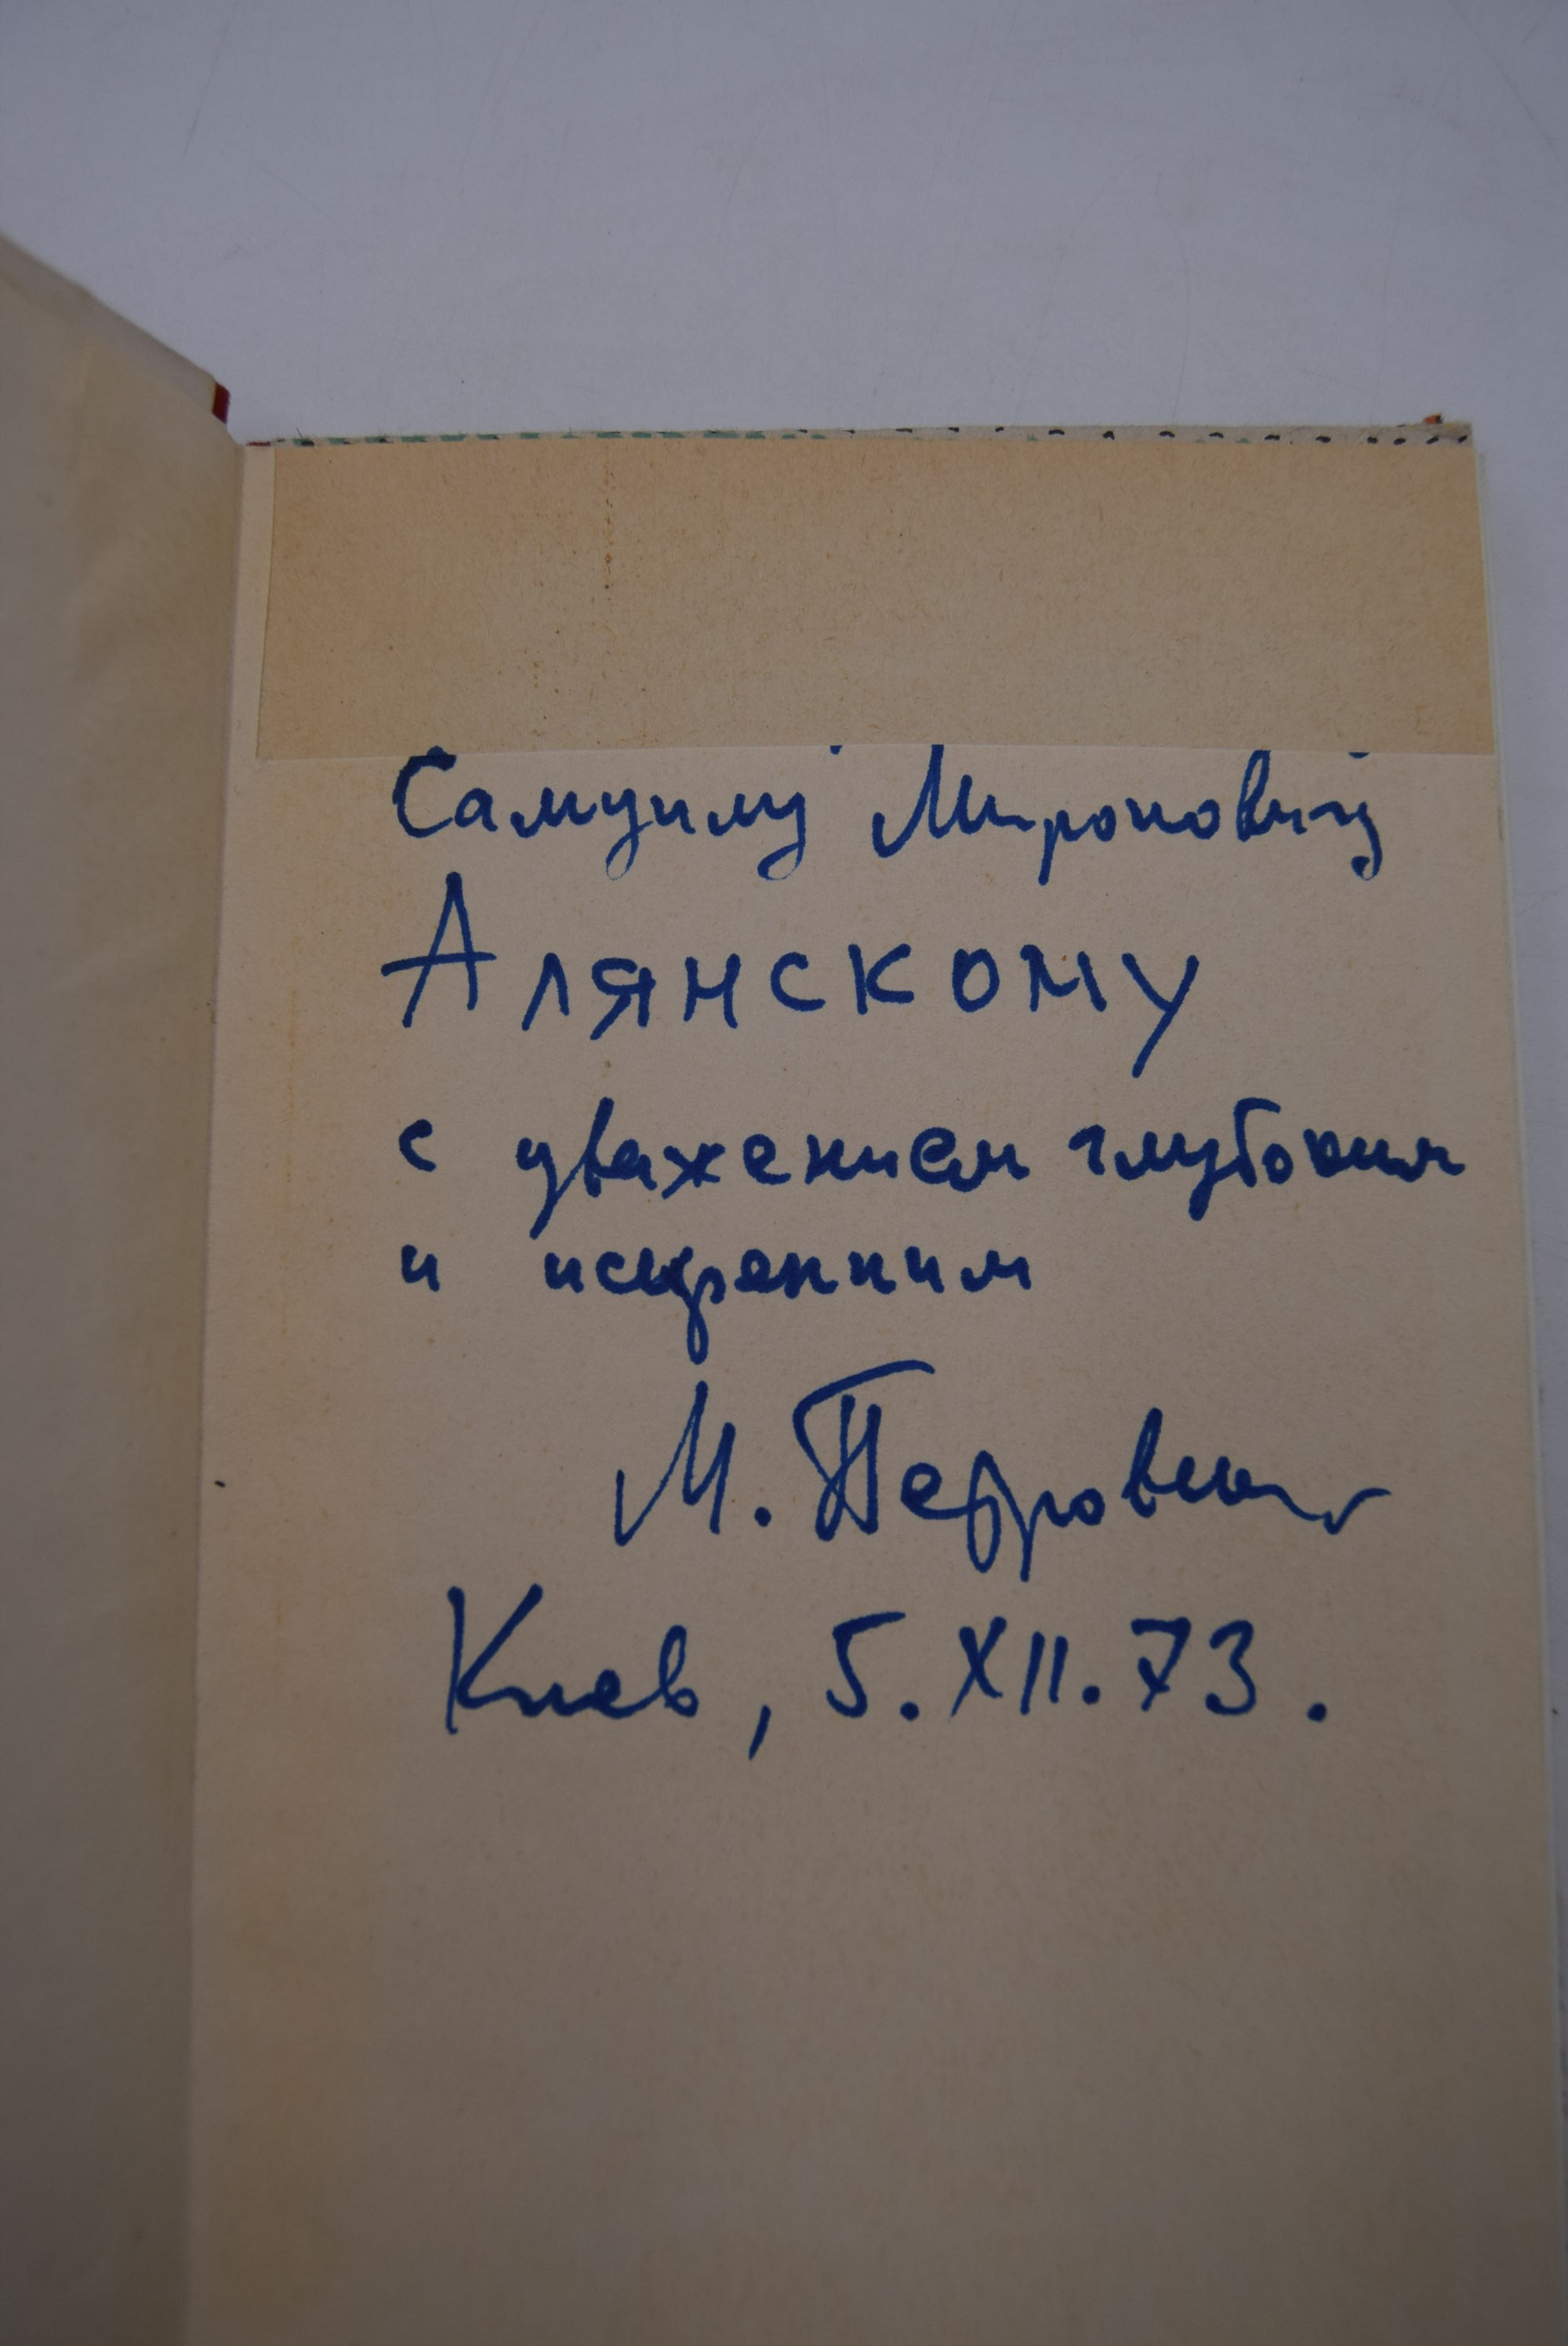 Самуилу Мироновичу
Алянскому
с уважением глубоким
и искренним
М. Петровский
Киев, 5.XII.73.